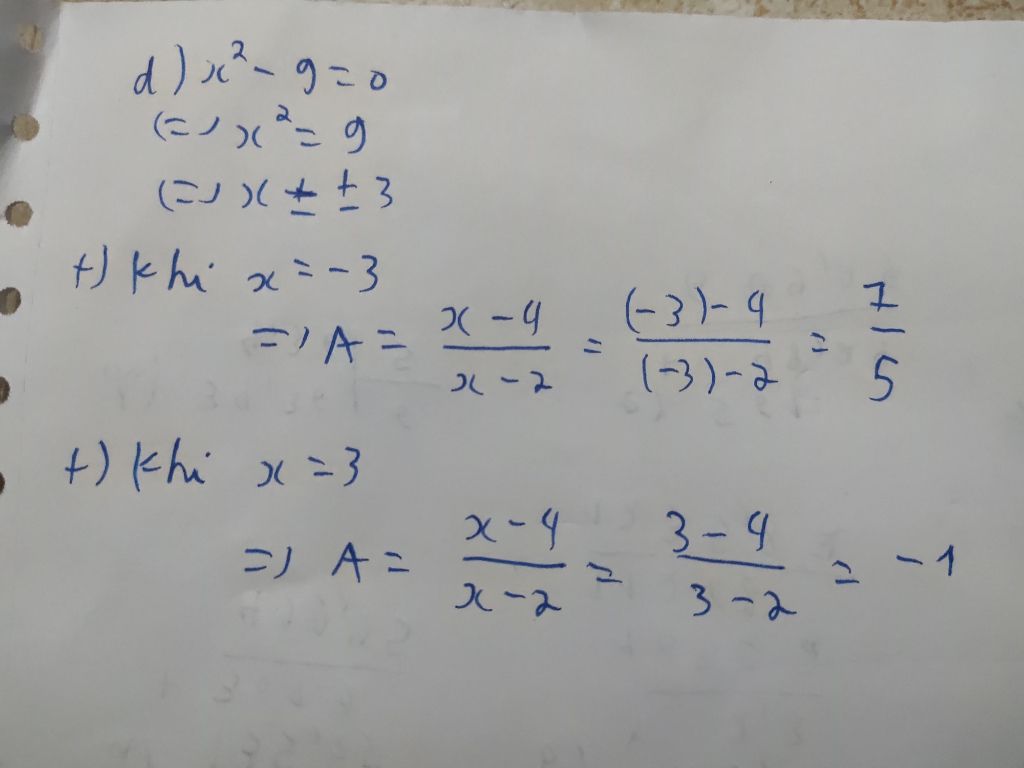 d) x² - 9 = 0
(=) x² = 9
(=) x ± ± 3
+) Khi x = -3
=) A = \frac{x-4}{x-2} = \frac{(-3)-4}{(-3)-2} = \frac{7}{5}
+) Khi x = 3
=) A = \frac{x-4}{x-2} = \frac{3-4}{3-2} = -1